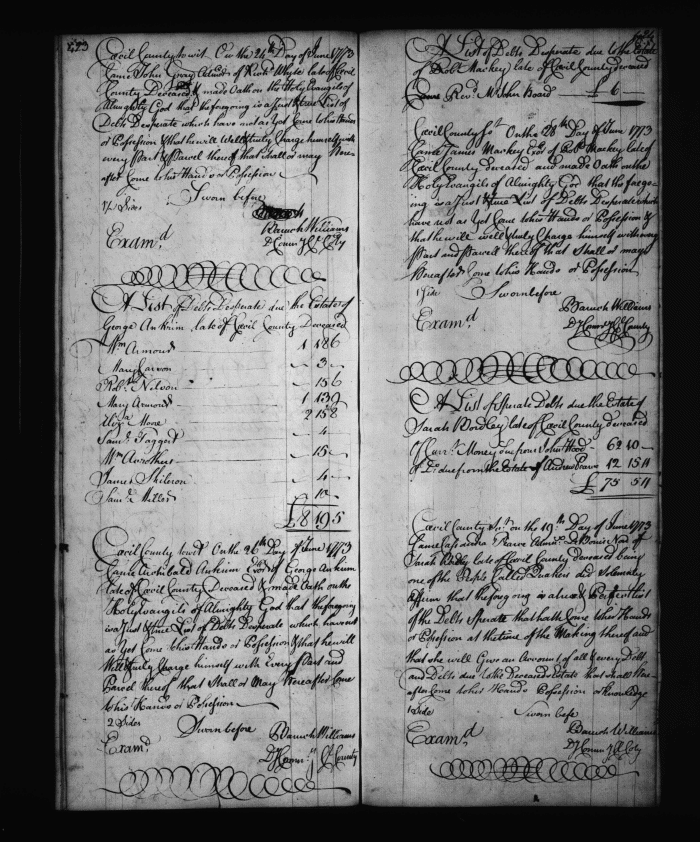 Cecil County to wit. On the 24th Day of June 1773
Came John Gray Admr. of late of Cecil
County Deceased & made Oath on the Holy Evangels of
Almighty God that the foregoing is a Just & true List of
Debts Desperate which have not as Yet Come to his Hands
or Possession & that he will Well & truly Charge himself with
every Part & Parcel thereof that shall or may Here-
after Come to his Hands or Possession
Sworn before
1/2 Sides
Baruch Williams
Exam.d
A List of Debts Desperate due the Estate of
George Ankrim late of Cecil County Deceased
Wm Armond 1 18 6
Mary - 3 -
Robt. - 15 6
Mary Armond 1 13 9
2 15 8
Saml. Taggert - 4 -
Wm - 15 -
James - 4 -
Saml. Miller - 10 -
£ 8 19 5
Cecil County to wit On the 26th Day of June 1773
Came Archibald Ankrim Exor. of George Ankrim
late of Cecil County Deceased & made Oath on the
Holy Evangils of Almighty God that the foregoing
is a Just & true List of Debts Desperate which have not
as Yet Come to his Hands or Possession & that he will
Well & truly Charge himself with Every Part and
Parcel thereof that Shall or May Hereafter Come
to his Hands or Possession
2 Sides
Sworn before Baruch Williams
Exam.d
County
A List of Debts Desperate due to the Estate
of Robt Mackey late of Cecil County deceased
Revd. Mr. John £ 6 -
Cecil County Sst. On the 28th Day of June 1773
Came James Mackey Exor. of Robt. Mackey late of
Cecil County deceased and made Oath on the
Holy Evangils of Almighty God that the forego-
ing is a Just & true List of Debts Desperate which
have not as Yet Come to his Hands or Possession &
that he will well & truly Charge himself with every
Part and Parcell thereof that Shall or may
Hereafter Come to his Hands or Possession
1 Side Sworn before
Baruch Williams
Exam.d
County
A List of Sperate Debts due the Estate of
Sarah late of Cecil County deceased
Of Currt. Money due from John 62 10 -
of Do. due from the Estate of Andrew 12 15 11
£ 75 5 11
Cecil County Sst. on the 19th Day of June 1773
Came Cassandra Pearce Admx. De Bonis Non of
Sarah late of Cecil County deceased being
one of the People Called Quakers did Solemnly
Affirm that the foregoing is a true & Perfect list
of the Debts Sperate that hath Come to her Hands
or Possession at the time of the Making thereof and
that she will Give an Account of all & every Debt
and Debts due to his Deceased Estate that Shall Here-
after Come to his Hands Possession or Knowledge
1 Side Sworn befe
Baruch Williams
Exam.d